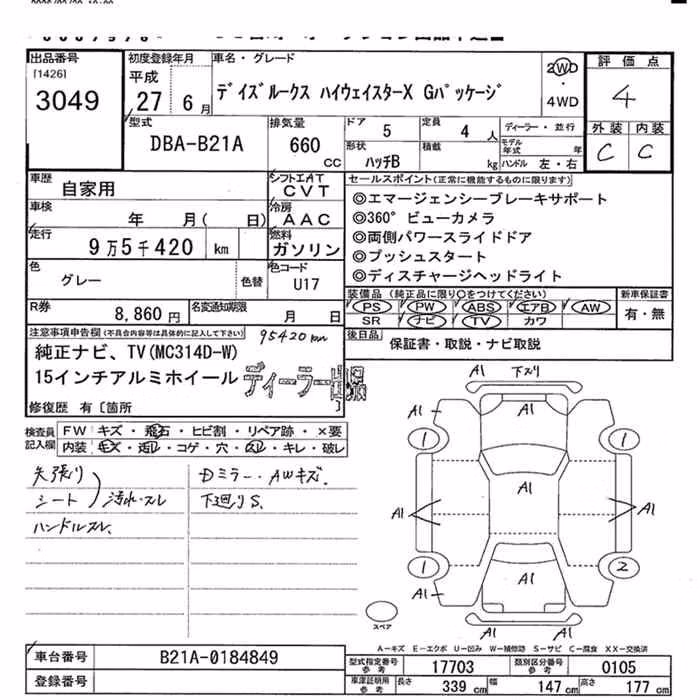 出品番号
[1426]
3049
初度登録年月
平成
27年 6月
車名・グレード
デイズルークス ハイウェイスターX Gパッケージ
2WD
・
4WD
評価点
4
外装 内装
C C
型式
DBA-B21A
排気量
660
CC
ドア 5
定員 4 人
ディーラー・並行
形状
ハッチB
積載
kg
モデル年式 年
ハンドル 左・右
車歴
自家用
シフト AT
CVT
車検
年 月( 日)
冷房
AAC
走行
9万5千420 km
燃料
ガソリン
色
グレー
色替
色コード
U17
R券
8,860円
名変通知期限
月 日
セールスポイント(正常に機能するものに限ります)
◎エマージェンシーブレーキサポート
◎360°ビューカメラ
◎両側パワースライドドア
◎プッシュスタート
◎ディスチャージヘッドライト
装備品(純正品に限り○をつけてください)
PS PW ABS エアB AW
SR ナビ TV カワ
新車保証書
有・無
後日品
保証書・取説・ナビ取説
注意事項申告欄(不具合内容等は具体的に記入して下さい)
95420km
純正ナビ、TV(MC314D-W)
15インチアルミホイール
ディーラー出品
修復歴 有〔箇所 〕
検査員
記入欄
FW キズ・飛石・ヒビ割・リペア跡・×要
内装 ・・コゲ・穴・・キレ・破レ
天張り
シート
汚れ・スレ
ハンドルスレ
Dミラー・AWキズ
下廻りS
A1 下スリ
A1 A1 A1
1 1
A1
A1 A1
1 2
A1
A1 A1
スペア
A1 A1
A-キズ E-エクボ U-凹み W-補修跡 S-サビ C-腐食 XX-交換済
車台番号
B21A-0184849
登録番号
型式指定番号
参考
17703
類別区分番号
参考
0105
車庫証明用
参考
長さ 339 cm 幅 147 cm 高さ 177 cm